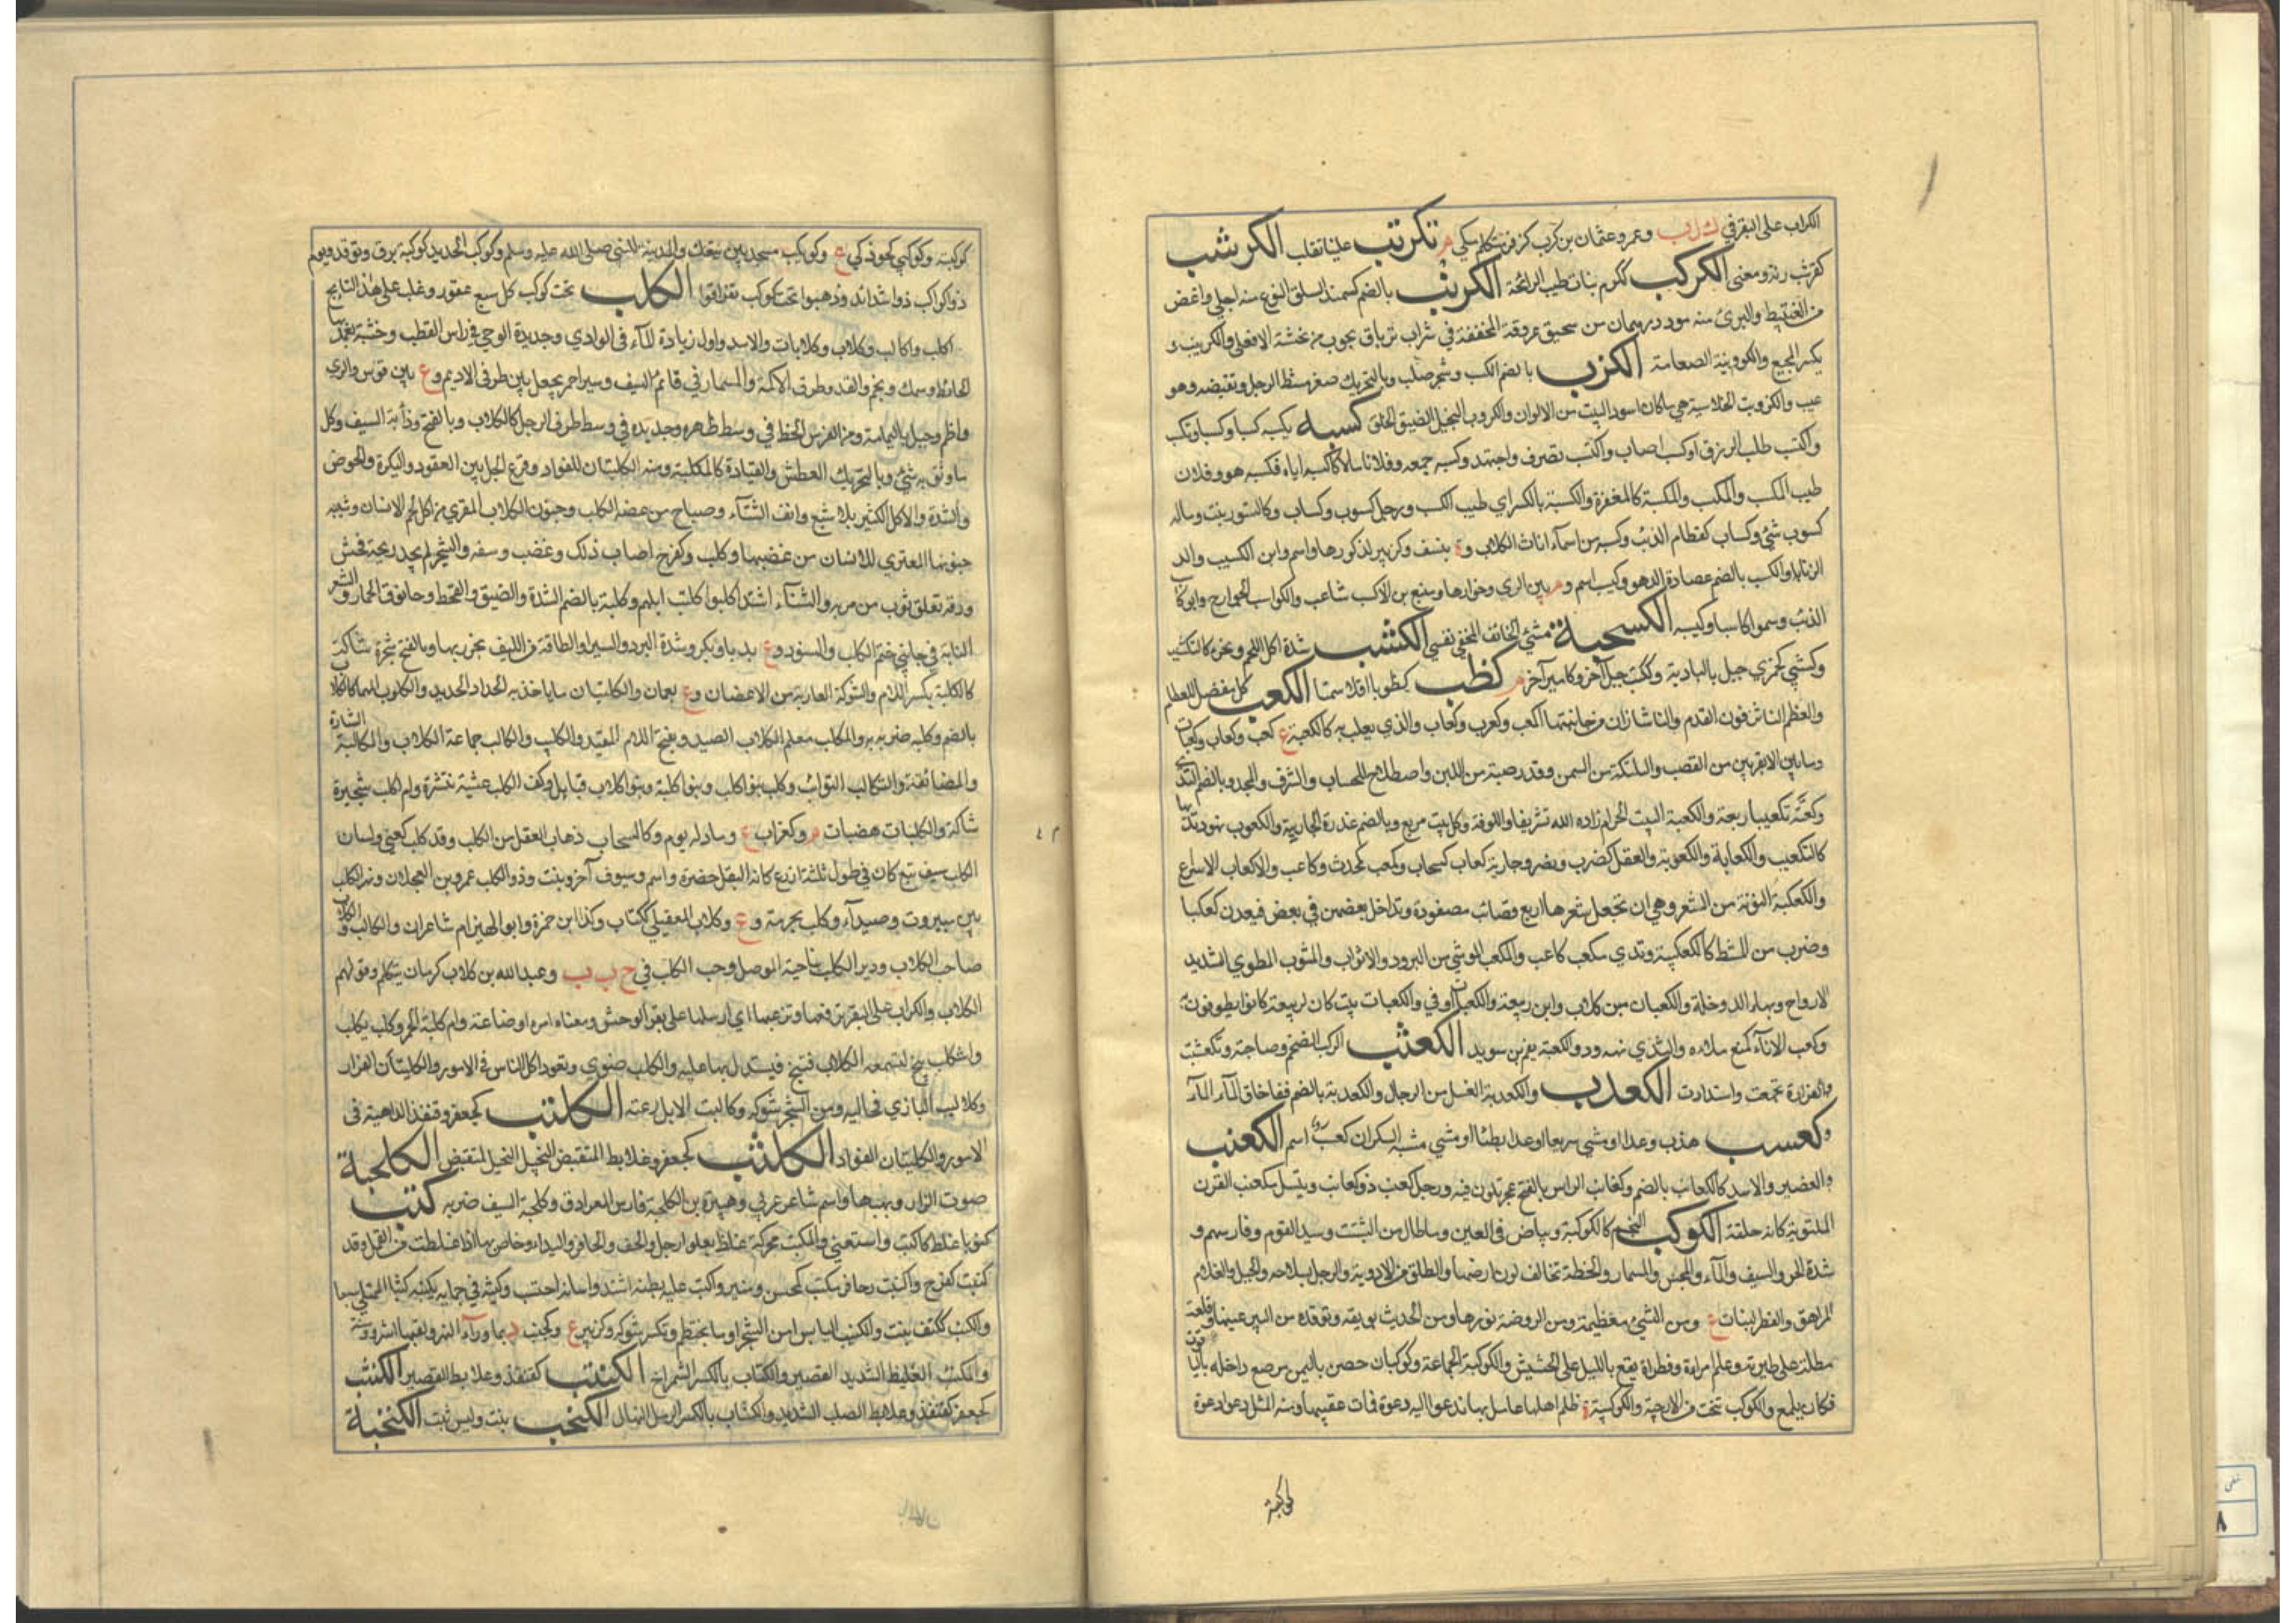 الكراب على البقر في ك ل ب وعمرو عثمان بن كرب كزفر متكلم مكي م تكرتب علينا تقلب الكرشب
كقرشب زنة ومعنى الكركب ككركم نبات طيب الرائحة الكرنب بالضم كسمند السلق او نوع منه احلى واغض
من القنبيط والبري منه مر ودرهمان من سحيق عروقه المجففة في شراب ترياق مجرب من نهشة الافعى والكرنيب و
يكسر المجيع والكرنبة الصعامة الكزب بالضم الكسب وشجر صلب وبالتحريك صغر مشط الرجل وتقبضه وهو
عيب والكزوبة الخلاسية هي ما كان اسود البيت من الالوان والكروب البخيل الضيق الخلق كسبه يكسبه كسبا وكسبا وتكسب
واكتسب طلب الرزق او كسب اصاب واكتسب تصرف واجتهد وكسبه جمعه وفلانا مالا كاكسبه اياه فكسبه هو وفلان
طيب المكسب والمكسب والمكسبة كالمغفرة والكسبة بالكسر اي طيب الكسب ورجل كسوب وكساب وكالتنور نبت وماله
كسوب شئ وكساب كقطام الذئب وكسبه من اسماء اناث الكلاب وة بنسف وكزبير لذكورها واسم وابن الكسيب ولد
الزنا او الكسب بالضم عصارة الدهن وكيسب اسم وة بين الري وخوارها ومنيع بن الاكسب شاعر والكواسب الجوارح وابو كاسب
الذئب وسموا كاسبا وكيسبه الكسحبة مشي الخائف المخفي نفسه الكشب شدة اكل اللحم ونحوه كالتكشيب
وكشبى كجمزى جبل بالبادية وككتب جبل آخر وكامير آخر م كظب كظوبا امتلا سمنا الكعب كل مفصل للعظام
والعظم الناشز فوق القدم والناشزان من جانبيها اكعب وكعوب وكعاب والذي يلعب به كالكعبة ج كعب وكعاب وكعبات
وما بين الانبوبين من القصب والكتلة من السمن وقدر صبة من اللبن واصطلاح للحساب والشرف والمجد وبالضم الثدي
وكعبته تكعيبا ربعته والكعبة البيت الحرام زاده الله تشريفا والغرفة وكل بيت مربع وبالضم عذرة الجارية والكعوب نهود ثديها
كالتكعيب والكعابة والكعوبة والفعل كضرب ونصر وجارية كعاب كسحاب ومكعب كمحدث وكاعب والاكعاب الاسراع
والكعكبة النونة من الشعر وهي ان تجعل شعرها اربع قصائب مضفورة وتداخل بعضهن في بعض فيعدن كعكبا
وضرب من المشط كالكعكبية وثدي مكعب كاعب والمكعب الموشي من البرود والاثواب والثوب المطوي الشديد
الادراج وبهاء الدوخلة والكعبان ابن كلاب وابن ربيعة والكعبات او ذي الكعبات بيت كان لربيعة كانوا يطوفون به
وكعب الاناء كمنع ملاه والثدي نهد وذو الكعبة نعيم بن سويد الكعثب الركب الضخم وصاحبته وتكعثبت
العرارة تجمعت واستدارت الكعدب والكعدبة الفسل من الرجال والكعدبة بالضم نفاخات الماء
وكعسب هذب وعدا او مشي سريعا او عدا بطيئا او مشي مشية السكران كعسب اسم الكعنب
والقصير والاسد كالكعانب بالضم وكعانب الراس بالفتح عجر تكون فيه ورجل كعنب ذو كعانب وتيس مكعنب القرن
الملتوية كانه حلقة الكوكب النجم كالكوكبة وبياض في العين وما طال من النبت وسيد القوم وفارسهم و
شدة الحر والسيف والماء والمحبس والمسمار والخطة تخالف لون ارضها والطلق من الاودية والرجل بسلاحه والجبل والغلام
المراهق والفطر لنبات ع ومن الشيء معظمه ومن الروضة نورها ومن الحديث بريقه وتوقده من البئر عينها وقلعة
مطلة على طبرية وعلم امراءة وقطرات تقع بالليل على الحشيش والكوكبة الجماعة وكوكبان حصن باليمن رصع داخله بالياقوت
فكان يلمع والكوكب نخت من الارحية والكوكبية ة ظلم اهلها عامل بها فدعوا اليه دعوة فمات عقيبها ومنه المثل دعوا دعوة
كوكبية
كوكبية وكوكبي كخوزلي ع وكويكب مسجد بين تبوك والمدينة للنبي صلى الله عليه وسلم وكوكب الحديد كوكبة برق وتوقد ويوم
ذو كواكب ذو شدائد وذهبوا تحت كل كوكب تفرقوا الكلب تحت كوكب كل سبع عقور وغلب على هذا النابح ج
اكلب واكالب وكلاب وكلابات والاسد واول زيادة الماء في الوادي وحديدة الرحى في راس القطب وخشبة يعمد بها
الحائط وسمك ونجم والقد وطرف الاكمة والمسمار في قائم السيف وسير احمر يجعل بين طرفي الاديم وع بين قومس والري
واطم وجبل باليمامة ومن الفرس الخط في وسط ظهره وحديدة في وسط طرف الرحل كالكلاب وبالفتح وذؤابة السيف وكل
ما وثق به شيء وبالتحريك العطش والقيادة كالمكلبة ومنه الكلتبان للقواد ووقوع الحبل بين القعو والبكرة والحرص
والشدة والاكل الكثير بلا شبع وانف الشتاء وصياح من عضه الكلب وجنون الكلاب المعتري من اكل لحم الانسان وشبه
جنونها المعتري للانسان من عضبها وكلب وكفرح اصاب ذلك وغضب وسفه والشجر لم يجد ريه فخشن
ورقه تعلق بثوب من مر به والشتاء اشتد اكلبوا كلبت ابلهم وكلبة بالضم الشدة والضيق والقحط وحانوت الخمار والشعر
النابت في جانبي خطم الكلب والسنور وع بديار بكر وشدة البرد والسير او الطاقة من الليف يخرز بها وبالفتح شجرة شاكة
كالكلبة بكسر اللام والشوكة العارية من الاغصان وع بعمان والكلبتان ما ياخذ به الحداد الحديد والكلوب المهماز كالكلاب
بالضم وكلبه ضربه به والمكلب معلم الكلاب الصيد وبفتح اللام المقيد والكليب والكالب جماعة الكلاب والمكالبة المشارة
والمضايقة والتكالب التواثب وكلب بنو اكلب وبنو كلبة وبنو كلاب قبائل وكف الكلب عشبة منتشرة وام كلب شجيرة
شاكة والكلبات هضبات م وكغراب ع وماء له يوم وكالسحاب ذهاب العقل من الكلب وقد كلب كعني ولسان
الكلب سيف تبع كان في طول ثلثة اذرع كانه البقل خضرة واسم وسيوف آخر ونبت وذو الكلب عمرو بن العجلان ونهر الكلب
بين بيروت وصيداء وكلب بحرمة وع وكلاب العقيلي ككتاب وكذا ابن حمزة وابو الهيذام شاعران والكالب والكلاب
صاحب الكلاب ودير الكلب بناحية الموصل وجب الكلب في ج ب ب وعبد الله بن كلاب كرمان متكلم وقولهم
الكلاب والكراب على البقر ترفعها وتنصبها اي ارسلها على بقر الوحش ومعناه امره اوضاعته وام كلبة الحمى وكلب يكلب
واستكلب نبح لتسمعه الكلاب فتنبح فيستدل بها عليه والكلب ضري وتعود اكل الناس في الامور والكلبتان الفرار
وكلاليب البازي مخاليبه ومن الشجر شوكه وكالبت الابل رعته الكلتب كجعفر وقنفذ المداهنة في
الامور والكلتبان القواد الكلثب كجعفر وعلابط المتقبض البخيل الكلحبة
صوت النار ولهبها واسم شاعر عربي وهبيرة بن الكلحبة فارس العرادة وكلحبه بالسيف ضربه كنب
كنوبا غلظ كاكنب واستغنى والكنب محركة غلظ يعلو الرجل والخف والحافر واليد او خاص بها اذا غلظت من العمل وقد
كنبت كفرح واكنبت وحافر مكنب كمحسن ومنبر واكنب عليه بطنه اشتد ولسانه احتبس وكنبه في جرابه يكنبه كنبا
والكنب ككتف نبت والكنيب اليابس من الشجر او ما تحطم وتكسر شوكه وكزبير ع وكجنب د بما وراء النهر
والمكنب الغليظ الشديد القصير والكناب بالكسر الشمراخ الكنتب كقنفذ وعلابط القصير الكنثب
كجعفر كقنفذ وعلابط الصلب الشديد والكنثاب بالكسر الرمل المنهال الكنحب نبت وليس بثبت الكنخبة